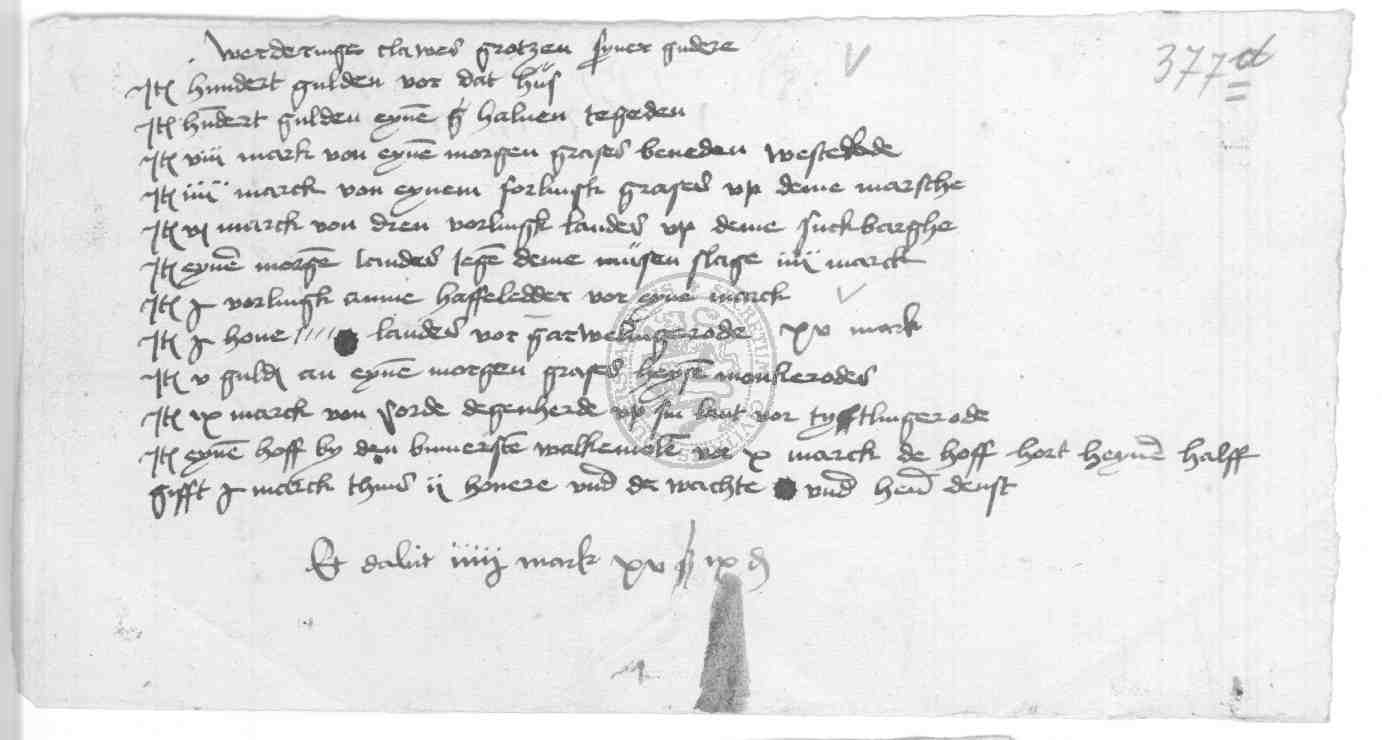 Werderinge clawes grotzen syner gudere
377 d
Itē hundert gulden vor dat hüs
Itē hūdert gulden eynē haluen tegeden
Itē viij mark von eynē morgen grases beneden westerode
Itē iiij marck von eynem forlingk grases vp deme marsche
Itē vj marck von dren vorlingk landes vp deme suckbarghe
Itē eynē morgē landes iegē deme müsen slage iiij marck
Itē j vorlingk anme hasseledder vor eyne marck
Itē j houe landes vor gatwelingerode xv mark
Itē v guldē an eynē morgen grases heysē monkerodes
Itē ix marck von corde degenherde vp sin lant vor tyftlingerode
Itē eynē hoff by den bunersten walkemolē vor x marck de hoff hort heynē halff
gifft j marck thins ij honere vnd de wachte vnd henē denst
Et dabit iiiij mark xv ß ix d